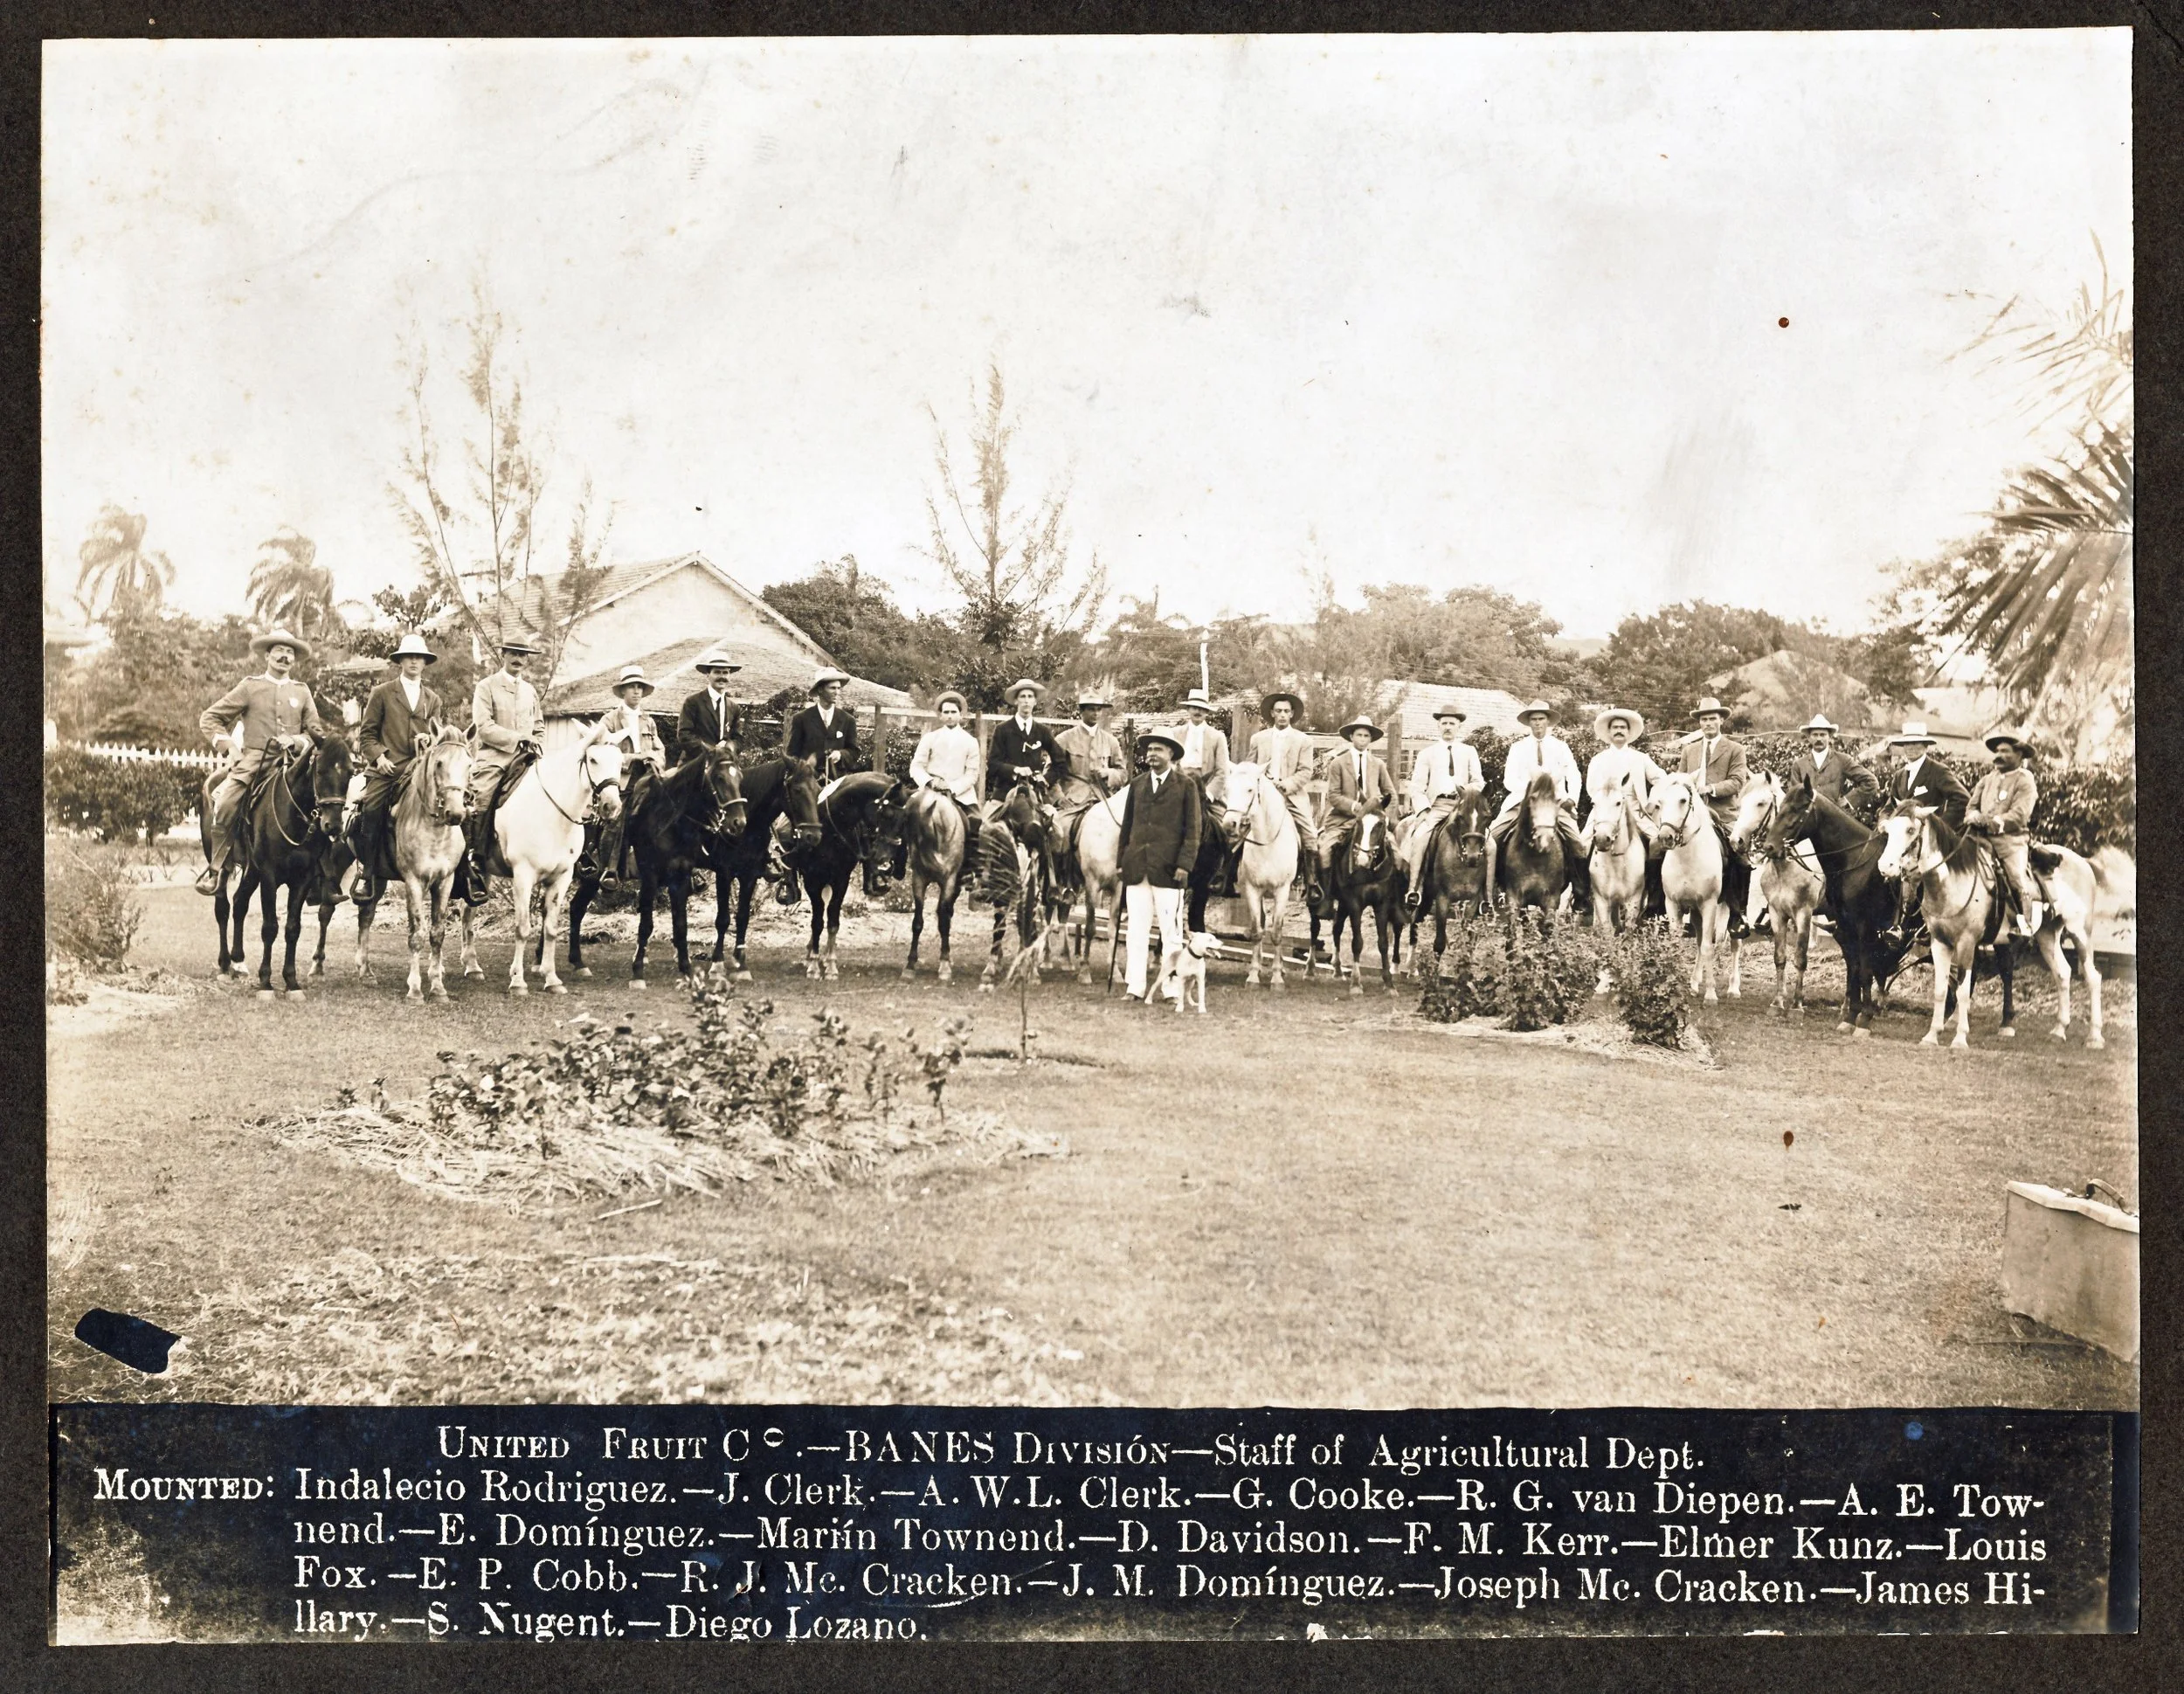 UNITED FRUIT Cº.—BANES DIVISIÓN—Staff of Agricultural Dept.
MOUNTED: Indalecio Rodriguez.—J. Clerk.—A. W.L. Clerk.—G. Cooke.—R. G. van Diepen.—A. E. Tow-
nend.—E. Domínguez.—Martín Townend.—D. Davidson.—F. M. Kerr.—Elmer Kunz.—Louis
Fox.—E. P. Cobb.—R. J. Mc. Cracken.—J. M. Domínguez.—Joseph Mc. Cracken.—James Hi-
llary.—S. Nugent.—Diego Lozano.